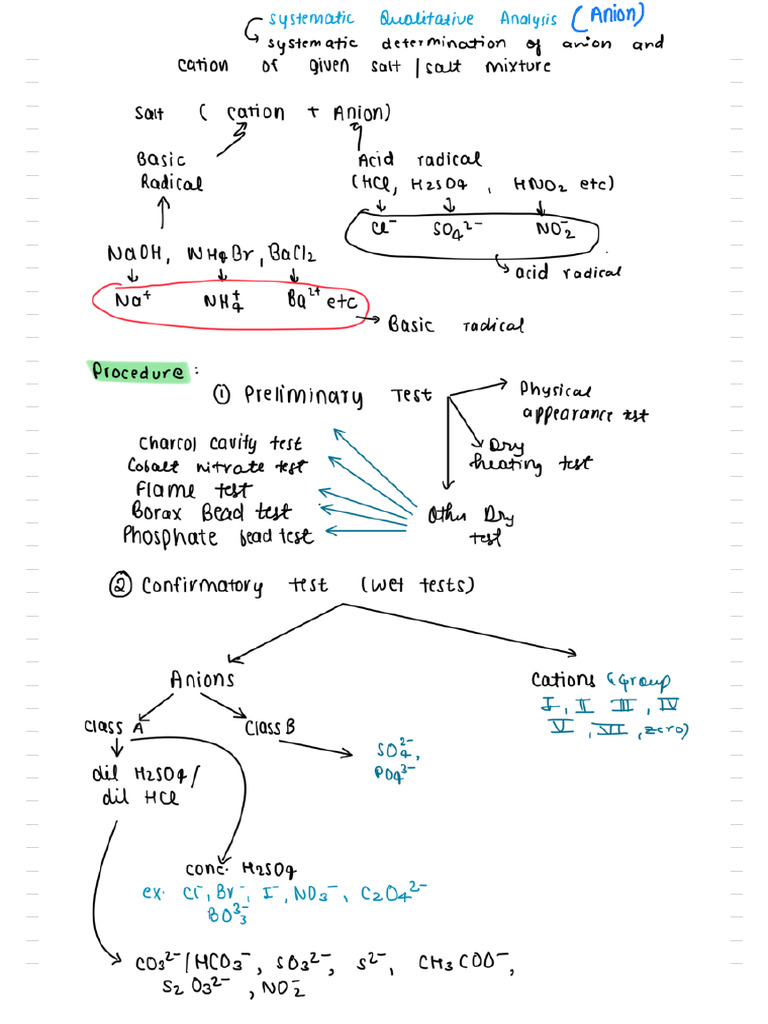 systematic Qualitative Analysis (Anion)
systematic determination of anion and
cation of given salt / salt mixture
salt ( cation + Anion)
Basic
Radical
Acid radical
(HCl, H2SO4, HNO2 etc)
Cl⁻ SO4²⁻ NO2⁻
acid radical
NaOH, NH4Br, BaCl2
Na⁺ NH4⁺ Ba²⁺ etc
Basic radical
Procedure:
① Preliminary Test
Physical
appearance test
Dry
heating test
Other Dry
test
Charcol cavity test
Cobalt nitrate test
Flame test
Borax Bead test
Phosphate bead test
② Confirmatory test (wet tests)
Anions
Cations (Group
I, II III, IV
V, VI, zero)
Class A
Class B
SO4²⁻,
PO4³⁻
dil H2SO4/
dil HCl
conc. H2SO4
ex. Cl⁻, Br⁻, I⁻, NO3⁻, C2O4²⁻
BO3³⁻
CO3²⁻/HCO3⁻, SO3²⁻, S²⁻, CH3COO⁻,
S2O3²⁻, NO2⁻